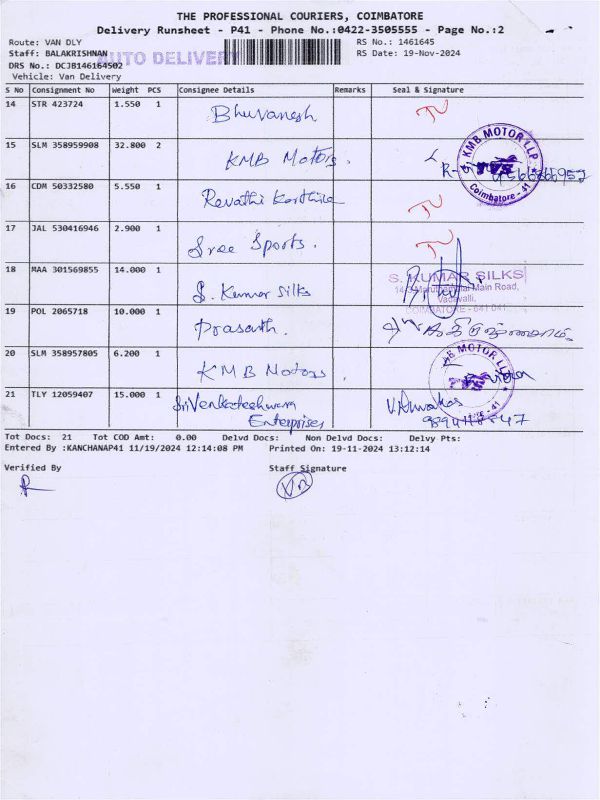 THE PROFESSIONAL COURIERS, COIMBATORE
Delivery Runsheet - P41 - Phone No.:0422-3505555 - Page No.:2
Route: VAN DLY
RS No.: 1461645
Staff: BALAKRISHNAN
AUTO DELIVERY
RS Date: 19-Nov-2024
DRS No.: DCJB146164502
Vehicle: Van Delivery
S No Consignment No Weight PCS Consignee Details Remarks Seal & Signature
14 STR 423724 1.550 1 Bhuvanesh
15 SLM 358959908 32.800 2 KMB Motors.
KMB MOTOR LLP
Coimbatore - 41
16 CDM 50332580 5.550 1 Revathi Karthika
17 JAL 530416946 2.900 1 Sree Sports.
18 MAA 301569855 14.000 1 S. Kumar Silks
S. KUMAR SILKS
Main Road,
Vadavalli,
COIMBATORE - 641 041
19 POL 2065718 10.000 1 Prasanth.
20 SLM 358957805 6.200 1 KMB Motors
MOTOR LLP
- 41
21 TLY 12059407 15.000 1 Sri Venkateshwara
Enterprises
Tot Docs: 21 Tot COD Amt: 0.00 Delvd Docs: Non Delvd Docs: Delvy Pts:
Entered By :KANCHANAP41 11/19/2024 12:14:08 PM Printed On: 19-11-2024 13:12:14
Verified By
Staff Signature